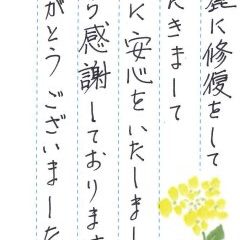 麗に修復をして
きまして
に安心をいたしまし
感謝しております
がとうございました